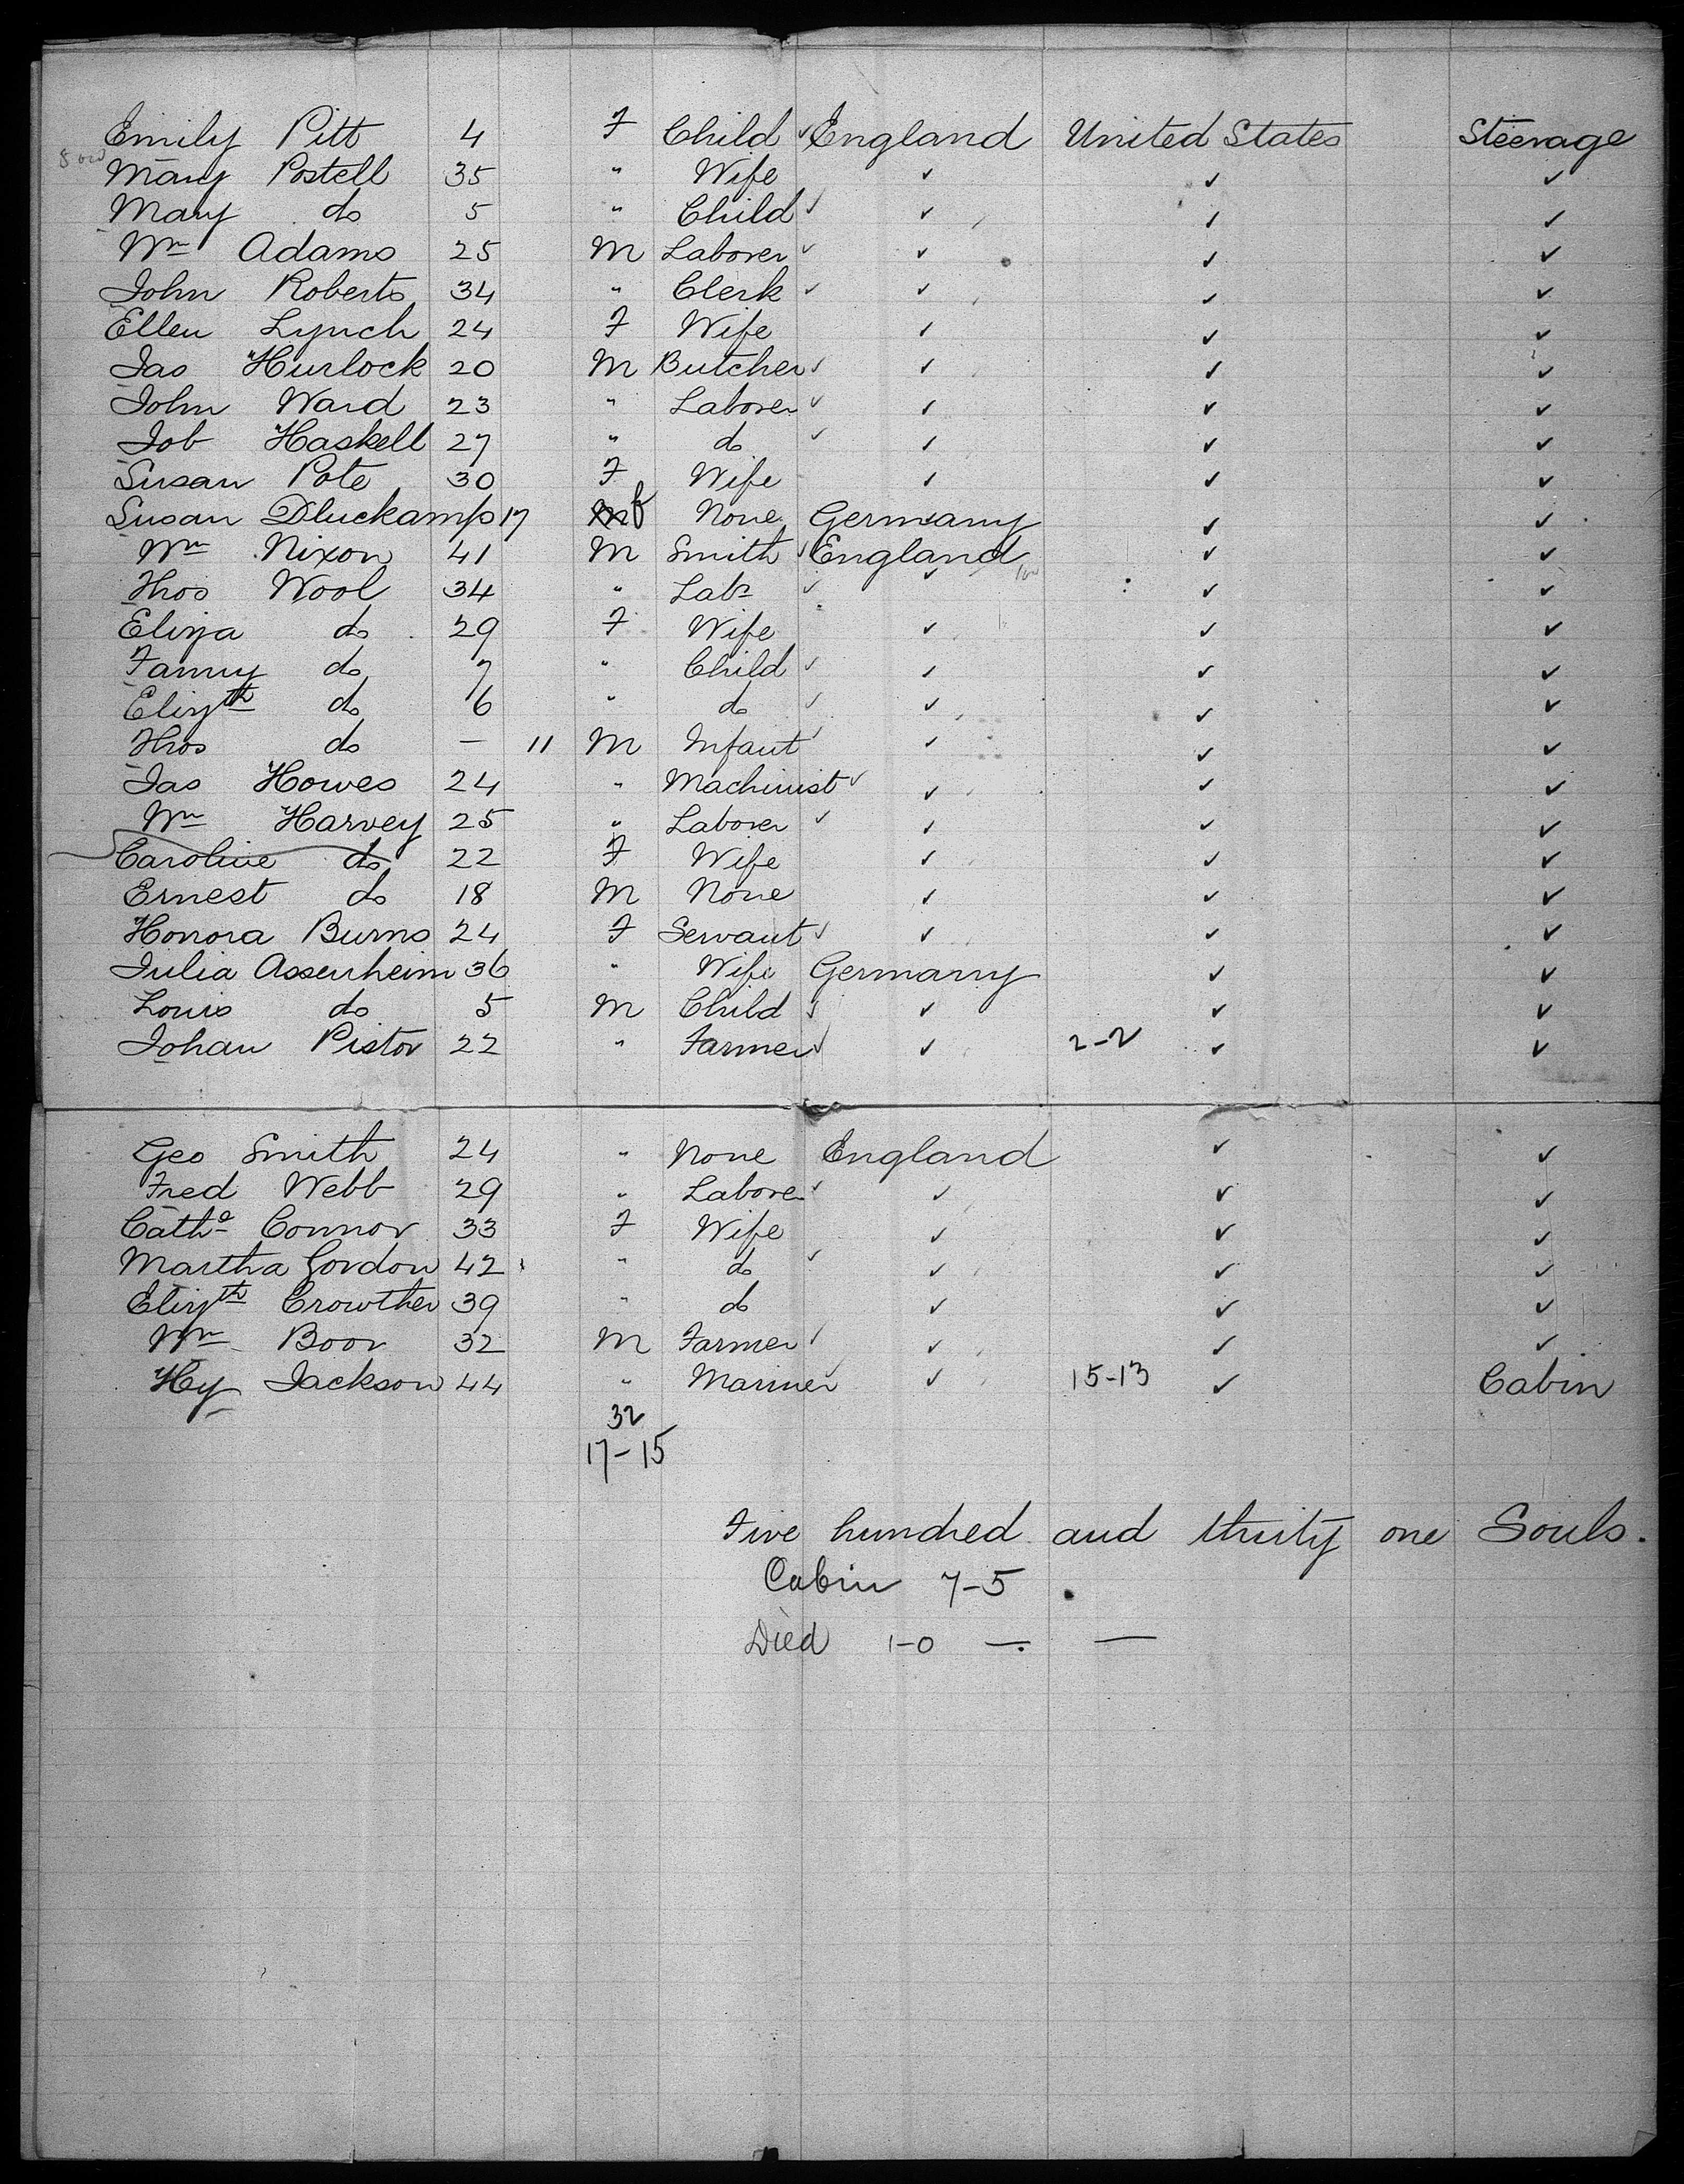 Emily Pitt 4 F Child ✓ England United States Steerage
Mary Postell 35 " Wife ✓ ✓ ✓
Mary do 5 " Child ✓ ✓ ✓ ✓
Wm Adams 25 M Laborer ✓ ✓ ✓ ✓
John Roberts 34 " Clerk ✓ ✓ ✓ ✓
Ellen Lynch 24 F Wife ✓ ✓ ✓
Jas Hurlock 20 M Butcher ✓ ✓ ✓ ✓
John Ward 23 " Laborer ✓ ✓ ✓ ✓
Job Haskell 27 " do ✓ ✓ ✓ ✓
Susan Pote 30 F Wife ✓ ✓ ✓
Susan Dluckamp 17 M f None Germany ✓ ✓
Wm Nixon 41 M Smith ✓ England ✓ ✓
Thos Wool 34 " Labr ✓ ✓ ✓ ✓
Eliza do 29 F Wife ✓ ✓ ✓
Fanny do 7 " Child ✓ ✓ ✓ ✓
Elizth do 6 " do ✓ ✓ ✓ ✓
Thos do — 11 M Infant ✓ ✓ ✓ ✓
Jas Howes 24 " Machinist ✓ ✓ ✓ ✓
Wm Harvey 25 " Laborer ✓ ✓ ✓ ✓
Caroline do 22 F Wife ✓ ✓ ✓
Ernest do 18 M None ✓ ✓ ✓
Honora Burns 24 F Servant ✓ ✓ ✓ ✓
Julia Assenheim 36 " Wife Germany ✓ ✓
Louis do 5 M Child ✓ ✓ ✓ ✓
Johan Pistor 22 " Farmer ✓ ✓ 2-2 ✓ ✓
Geo Smith 24 " None England ✓ ✓
Fred Webb 29 " Laborer ✓ ✓ ✓ ✓
Cathe Connor 33 F Wife ✓ ✓ ✓
Martha Gordon 42 " do ✓ ✓ ✓ ✓
Elizth Crowther 39 " do ✓ ✓ ✓
Wm Boor 32 M Farmer ✓ ✓ ✓ ✓
Hy Jackson 44 " Mariner ✓ ✓ 15-13 ✓ Cabin
32
17-15
Five hundred and thirty one Souls.
Cabin 7-5
Died 1-0 — —